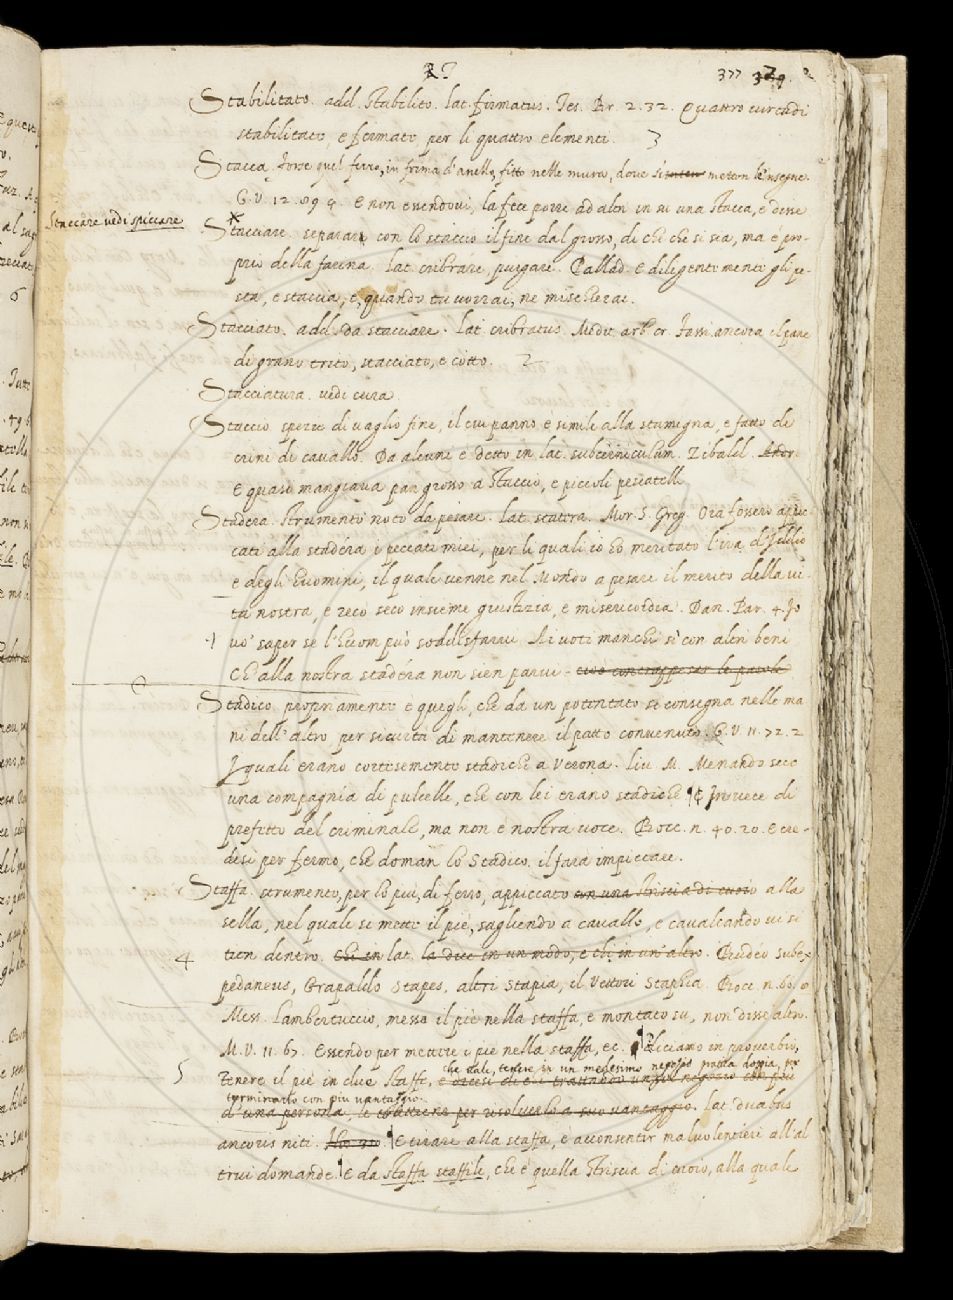 377 379.
Stabilitato. add. stabilito. lat. firmatus. Tes. Br. 2. 32. Quattro cerchi di
stabilitato, e fermato per li quattro elementi. 3
Stacca forse quel ferro, in forma d'anello, fitto nelle mura, dove si metton le'nsegne.
G. V. 12. 89 4. E non essendovi, la fece porre ad alti in su una stacca, e disse
Staccare vedi spiccare
Stacciare. separare con lo staccio il fine dal grosso, di che che si sia, ma è pro-
prio della farina. lat. cribrare, purgare. Pallad. E diligentemente gli pe-
sta, e staccia, e, quando tu vorrai, ne mischierai.
Stacciato. add. da stacciare. lat. cribratus. Medit. arb. cr. Fassi ancora il pane
di grano trito, stacciato, e cotto.
Stacciatura. vedi cura.
Staccio spezie di vaglio fine, il cui panno è simile alla stamigna, e fatto di
crini di cavallo. Da alcuni è detto in lat. subcerniculum. Zibald.
E quasi mangiava pan grosso a staccio, e piccoli pesciatelli
Stadera. strumento noto da pesare. lat. statera. Mor. S. Greg. Ora fossero appic-
cati alla stadera i peccati miei, per li quali io ho meritato l'ira d'Iddio
e degli huomini, il quale venne nel Mondo a pesare il merito della vi-
ta nostra, e recò seco insieme giustizia, e misericordia. Dan. Par. 4. Io
vo' saper se l'huom può soddisfarvi Ai voti manchi sì con altri beni
Ch'alla nostra stadera non sien parvi - 
Stadico. propriamente è quegli, che da un potentato si consegna nelle ma
ni dell'altro per sicurtà di mantenere il patto convenuto. G. V. 11. 72. 2
I quali erano cortesemente stadichi a Verona. Liv. M. Menando seco
una compagnia di pulcelle, che con lei erano stadiche. E in vece di
prefetto del criminale, ma non è nostra voce. Bocc. n. 40. 20. E cre-
desi per fermo, che doman lo stadico il farà impiccare.
Staffa. strumento, per lo più, di ferro, appiccato con una striscia di cuoio alla
sella, nel quale si mette il piè, sagliendo a cavallo, e cavalcando vi si
4 tien dentro. Chi in lat. la dice in un modo, e chi in un'altro. Budeo subex
pedaneus, Grapaldo stapes, altri stapia, il Vettori staphia. Bocc. n. 60.
Mess. Lambertuccio, messo il piè nella staffa, e montato su, non disse altro.
M. V. 11. 67. Essendo per mettere i piè nella staffa, ec. Diciamo in proverbio,
che vale, tenere in un medesimo negozio pratica doppia, per
5 Tenere il piè in due staffe,
terminarlo con più vantaggio.
d'una persona, suo vantaggio. lat. duabus
ancoris niti. E tirare alla staffa, è acconsentir malvolentieri all'al
trui domande. E da staffa staffile, che è quella striscia di cuoio, alla quale